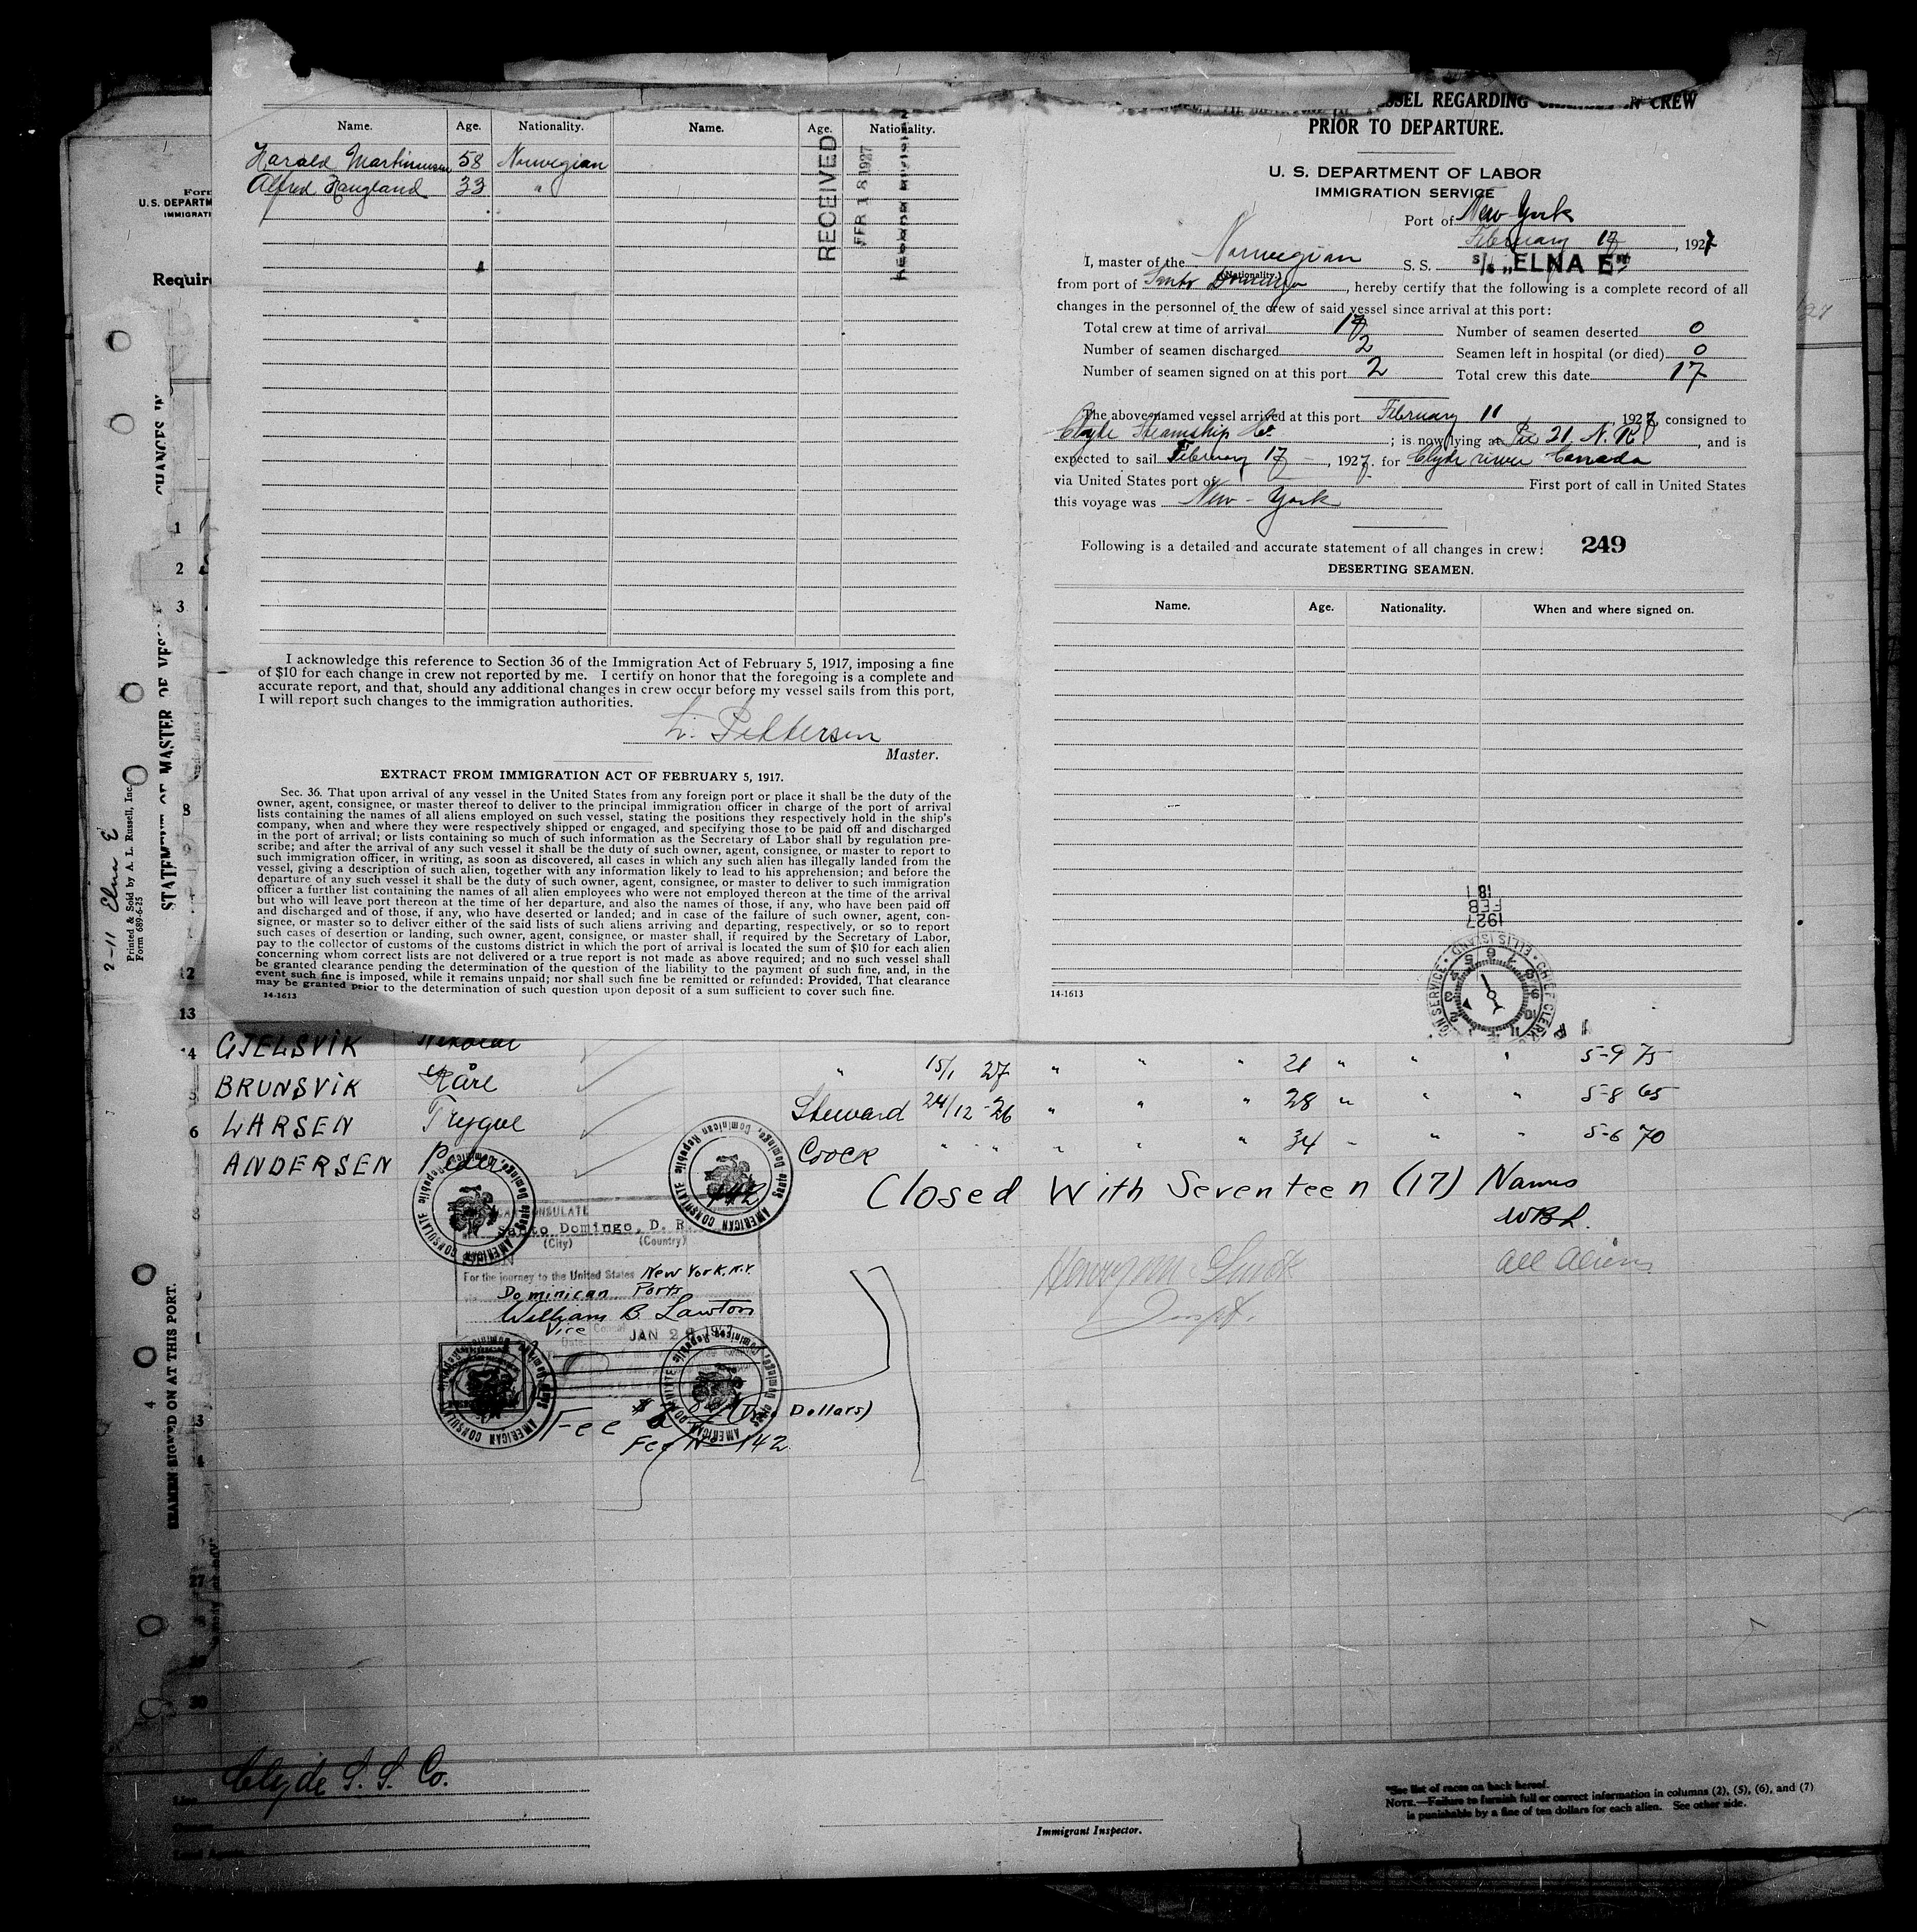 SSEL REGARDING CREW
PRIOR TO DEPARTURE.
U. S. DEPARTMENT OF LABOR
IMMIGRATION SERVICE
Port of New York
February 17, 1927
I, master of the Norwegian S. S. S/S "ELNA E"
(Nationality.)
from port of Santo Domingo, hereby certify that the following is a complete record of all
changes in the personnel of the crew of said vessel since arrival at this port:
Total crew at time of arrival 17 Number of seamen deserted 0
Number of seamen discharged 2 Seamen left in hospital (or died) 0
Number of seamen signed on at this port 2 Total crew this date 17
The above-named vessel arrived at this port February 11, 1927, consigned to
Clyde Steamship Co. ; is now lying at Pier 21, N. R., and is
expected to sail February 17, 1927, for Clyde river Canada
via United States port of First port of call in United States
this voyage was New-York
Following is a detailed and accurate statement of all changes in crew: 249
DESERTING SEAMEN.
Name. Age. Nationality. When and where signed on.
1927
FEB
18
ELLIS ISLAND • CHIEF CLERK
ON SERVICE
14-1613
Name. Age. Nationality. Name. Age. Nationality.
Harald Martinussen 58 Norwegian
Alfred Haugland 33 "
RECEIVED
FEB 18 1927
I acknowledge this reference to Section 36 of the Immigration Act of February 5, 1917, imposing a fine
of $10 for each change in crew not reported by me. I certify on honor that the foregoing is a complete and
accurate report, and that, should any additional changes in crew occur before my vessel sails from this port,
I will report such changes to the immigration authorities.
Pettersen
Master.
EXTRACT FROM IMMIGRATION ACT OF FEBRUARY 5, 1917.
Sec. 36. That upon arrival of any vessel in the United States from any foreign port or place it shall be the duty of the
owner, agent, consignee, or master thereof to deliver to the principal immigration officer in charge of the port of arrival
lists containing the names of all aliens employed on such vessel, stating the positions they respectively hold in the ship's
company, when and where they were respectively shipped or engaged, and specifying those to be paid off and discharged
in the port of arrival; or lists containing so much of such information as the Secretary of Labor shall by regulation pre-
scribe; and after the arrival of any such vessel it shall be the duty of such owner, agent, consignee, or master to report to
such immigration officer, in writing, as soon as discovered, all cases in which any such alien has illegally landed from the
vessel, giving a description of such alien, together with any information likely to lead to his apprehension; and before the
departure of any such vessel it shall be the duty of such owner, agent, consignee, or master to deliver to such immigration
officer a further list containing the names of all alien employees who were not employed thereon at the time of the arrival
but who will leave port thereon at the time of her departure, and also the names of those, if any, who have been paid off
and discharged and of those, if any, who have deserted or landed; and in case of the failure of such owner, agent, con-
signee, or master so to deliver either of the said lists of such aliens arriving and departing, respectively, or so to report
such cases of desertion or landing, such owner, agent, consignee, or master shall, if required by the Secretary of Labor,
pay to the collector of customs of the customs district in which the port of arrival is located the sum of $10 for each alien
concerning whom correct lists are not delivered or a true report is not made as above required; and no such vessel shall
be granted clearance pending the determination of the question of the liability to the payment of such fine, and, in the
event such fine is imposed, while it remains unpaid; nor shall such fine be remitted or refunded: Provided, That clearance
may be granted prior to the determination of such question upon deposit of a sum sufficient to cover such fine.
14-1613
Form
U. S. DEPARTM
IMMIGRATI
Require
CHANGES IN
STATEMENT OF MASTER OF VES
2-11 Elna E
Printed & Sold by A. L. Russell, Inc.
Form 689-6-25
SEAMEN SIGNED ON AT THIS PORT.
1
2
3
8
9
12
13
14 GJELSVIK
BRUNSVIK Kåre " 15/1 27 " " " 21 " " " 5-9 75
6 LARSEN Trygve Steward 24/12-26 " " " 28 " " " 5-8 65
ANDERSEN Peder Coock " " " " " 34 " " " 5-6 70
Closed With Seventeen (17) Names
WBL.
All Aliens
Inspt.
AMERICAN CONSULATE Santo Domingo, Dominican Republic
142
CONSULATE
Santo Domingo, D. R.
(City) (Country)
For the journey to the United States New York, N.Y.
Dominican Ports
William B. Lawton
Vice Consul
Date JAN 28 1927
Fee $ 2 (Two Dollars)
Fee No 142
27
30
Line Clyde S. S. Co.
Immigrant Inspector.
*See list of races on back hereof.
NOTE.—Failure to furnish full or correct information in columns (2), (5), (6), and (7)
is punishable by a fine of ten dollars for each alien. See other side.